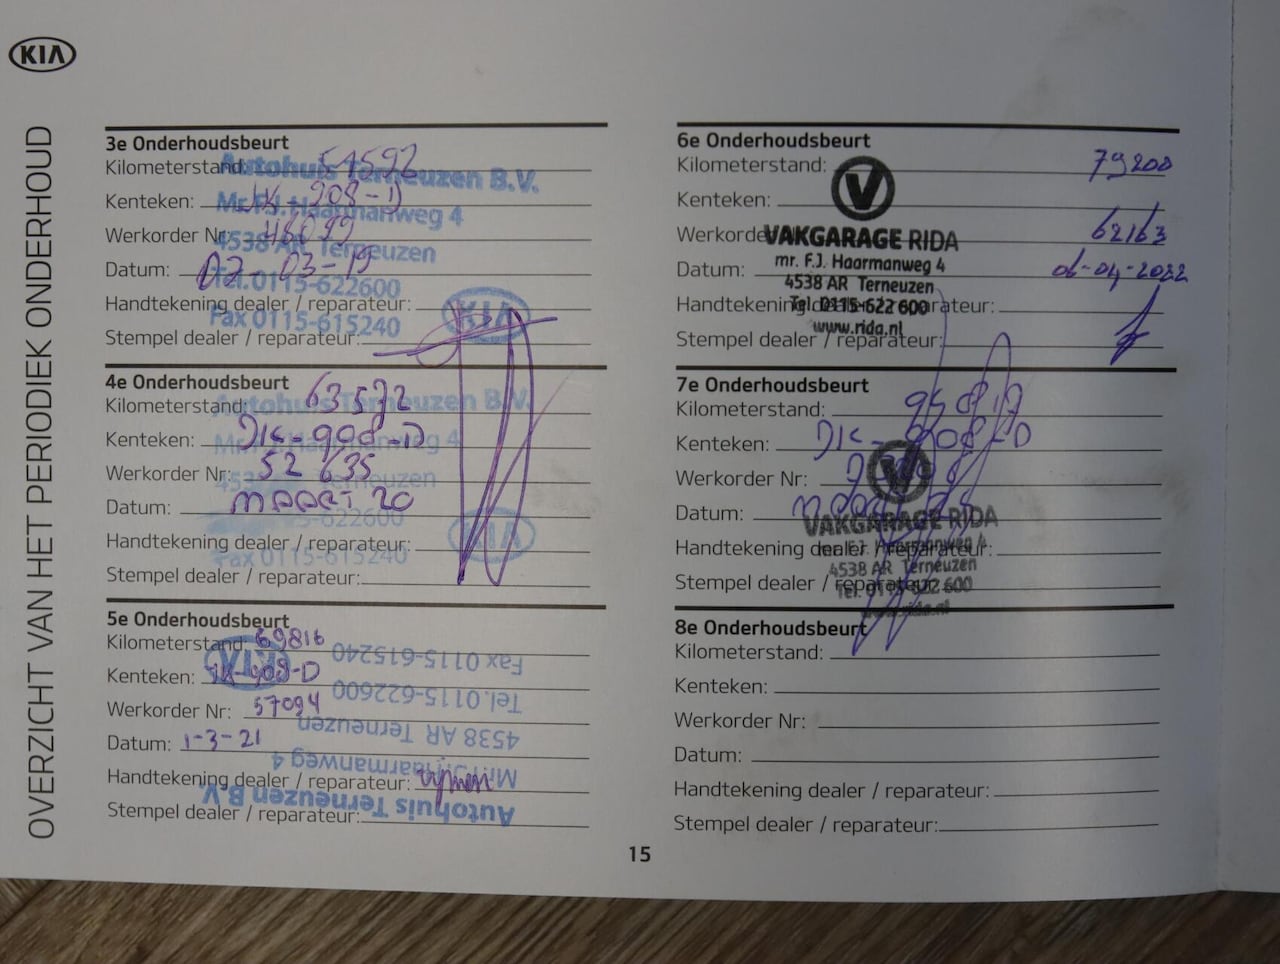 KIA
OVERZICHT VAN HET PERIODIEK ONDERHOUD
3e Onderhoudsbeurt
Kilometerstand: 54592
Kenteken: -908-D
Werkorder Nr:
Datum: 07-03-19
Handtekening dealer / reparateur:
Stempel dealer / reparateur:
Autohuis Terneuzen B.V.
Mr. F.J. Haarmanweg 4
4538 AR Terneuzen
Tel. 0115-622600
Fax 0115-615240
KIA
4e Onderhoudsbeurt
Kilometerstand: 63572
Kenteken: JK-908-D
Werkorder Nr: 52635
Datum: MAART 20
Handtekening dealer / reparateur:
Stempel dealer / reparateur:
Autohuis Terneuzen B.V.
Mr. F.J. Haarmanweg 4
4538 AR Terneuzen
0115-622600
Fax 0115-615240
KIA
5e Onderhoudsbeurt
Kilometerstand: 69816
Kenteken: JK-908-D
Werkorder Nr: 57094
Datum: 1-3-21
Handtekening dealer / reparateur:
Stempel dealer / reparateur:
Autohuis Terneuzen B.V.
Mr. F.J. Haarmanweg 4
4538 AR Terneuzen
Tel. 0115-622600
Fax 0115-615240
KIA
6e Onderhoudsbeurt
Kilometerstand: 79200
Kenteken:
Werkorder 62163
Datum: 06-04-2022
Handtekening dealer / reparateur:
Stempel dealer / reparateur:
V
VAKGARAGE RIDA
mr. F.J. Haarmanweg 4
4538 AR Terneuzen
Tel. 0115-622 600
www.rida.nl
7e Onderhoudsbeurt
Kilometerstand:
Kenteken: JK-908-D
Werkorder Nr:
Datum:
Handtekening dealer / reparateur:
Stempel dealer / reparateur:
V
VAKGARAGE RIDA
mr. F.J. Haarmanweg 4
4538 AR Terneuzen
Tel. 0115-622 600
www.rida.nl
8e Onderhoudsbeurt
Kilometerstand:
Kenteken:
Werkorder Nr:
Datum:
Handtekening dealer / reparateur:
Stempel dealer / reparateur:
15